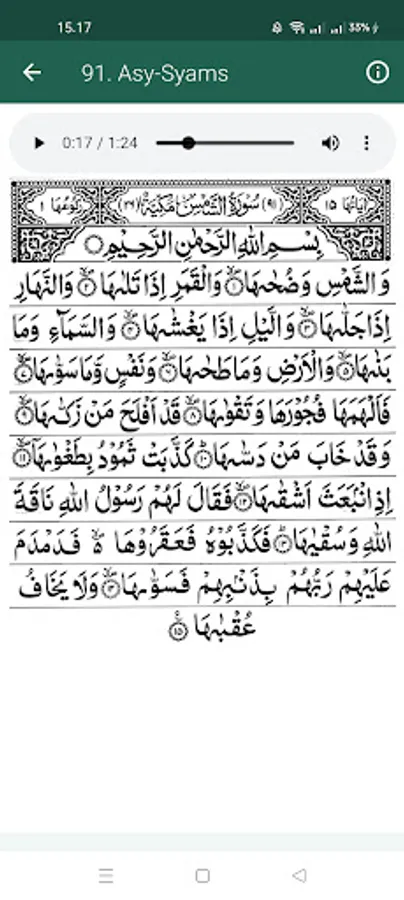 15.17
33%
91. Asy-Syams
0:17 / 1:24
اٰیَاتُهَا ١٥ (٩١) سُوْرَةُ الشَّمْسِ مَكِّيَّةٌ (٢٦) رُكُوْعُهَا ١
بِسْمِ اللهِ الرَّحْمٰنِ الرَّحِيْمِ
وَالشَّمْسِ وَضُحٰىهَا ١ وَالْقَمَرِ اِذَا تَلٰىهَا ٢ وَالنَّهَارِ
اِذَا جَلّٰىهَا ٣ وَالَّيْلِ اِذَا يَغْشٰىهَا ٤ وَالسَّمَآءِ وَمَا
بَنٰىهَا ٥ وَالْاَرْضِ وَمَا طَحٰىهَا ٦ وَنَفْسٍ وَّمَا سَوّٰىهَا ٧
فَاَلْهَمَهَا فُجُوْرَهَا وَتَقْوٰىهَا ٨ قَدْ اَفْلَحَ مَنْ زَكّٰىهَا ٩
وَقَدْ خَابَ مَنْ دَسّٰىهَا ١٠ كَذَّبَتْ ثَمُوْدُ بِطَغْوٰىهَآ ١١
اِذِ انْۢبَعَثَ اَشْقٰىهَا ١٢ فَقَالَ لَهُمْ رَسُوْلُ اللهِ نَاقَةَ
اللهِ وَسُقْيٰهَا ١٣ فَكَذَّبُوْهُ فَعَقَرُوْهَا فَدَمْدَمَ
عَلَيْهِمْ رَبُّهُمْ بِذَنْۢبِهِمْ فَسَوّٰىهَا ١٤ وَلَا يَخَافُ
عُقْبٰهَا ١٥